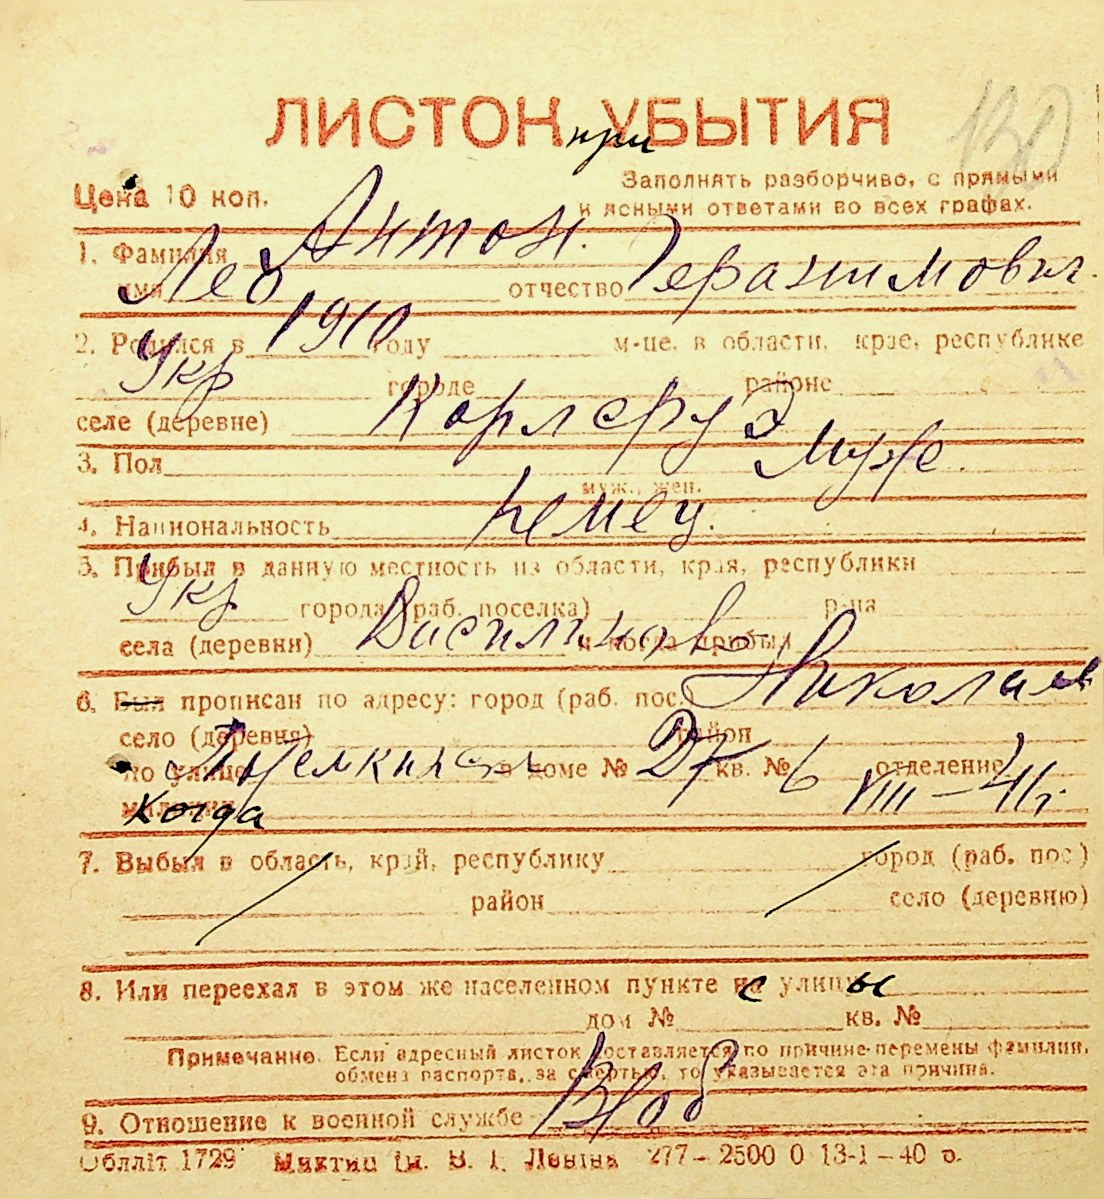 130
ЛИСТОК УБЫТИЯ
при
Цена 10 коп.
Заполнять разборчиво, с прямыми
и ясными ответами во всех графах.
1. Фамилия Антон
имя Лео отчество Геразимович
2. Родился в 1910 году м-це, в области, крае, республике
Укр городе районе
селе (деревне) Карлсруэ
3. Пол муж.
муж., жен.
4. Национальность немец.
5. Прибыл в данную местность из области, края, республики
Укр города (раб. поселка) р-на
села (деревни) Василиново и когда прибыл
6. Был прописан по адресу: город (раб. пос.) Николаев
село (деревня) район
по улице в доме № 27 кв. № 6 отделение
милиции VIII-41г.
когда
7. Выбыл в область, край, республику город (раб. пос.)
район село (деревню)
8. Или переехал в этом же населенном пункте с улицы
дом № кв. №
Примечание. Если адресный листок составляется по причине перемены фамилии,
обмена паспорта, за смертью, то указывается эта причина.
9. Отношение к военной службе В/об
Обллiт 1729 Миктип iм. В. I. Ленiна 277-2500 0 13-1-40 р.